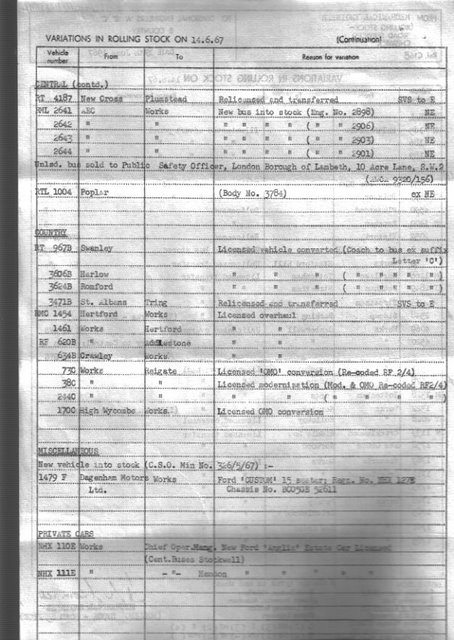 VARIATIONS IN ROLLING STOCK ON 14.6.67 (Continuation)
Vehicle number From To Reason for variation
CENTRAL (contd.)
RT 4187 New Cross Plumstead Relicensed and transferred SVS to E
RML 2641 AEC Works New bus into stock (Eng. No. 2898) NE
2642 " " " " " " ( " " 2906) NE
2643 " " " " " " ( " " 2903) NE
2644 " " " " " " ( " " 2901) NE
Unlsd. bus sold to Public Safety Officer, London Borough of Lambeth, 10 Acre Lane, S.W.2
9320/156)
RTL 1004 Poplar (Body No. 3784) ex NE
COUNTRY
RT 967B Swanley Licensed vehicle converted (Coach to bus ex suffix
Letter 'C')
3606B Harlow " " " ( " " " " )
3624B Romford " " " ( " " " " )
3471B St. Albans Tring Relicensed and transferred SVS to E
RMC 1454 Hertford Works Licensed overhaul
1461 Works Hertford " "
RF 620B " Addlestone " "
634B Crawley Works " "
73C Works Reigate Licensed 'OMO' conversion (Re-coded RF 2/4)
38C " " Licensed modernisation (Mod. & OMO Re-coded RF2/4)
244C " " " " ( " " " " )
170C High Wycombe Works Licensed OMO conversion
MISCELLANEOUS
New vehicle into stock (C.S.O. Min No. 326/5/67) :-
1479 F Dagenham Motors Works Ford 'CUSTOM' 15 seater; Regn. No. 127E
Ltd. Chassis No. 52611
PRIVATE CARS
NHX 110E Works Chief Oper.Mang. New Ford 'Anglia' Estate Car Licensed
(Cent.Buses Stockwell)
NHX 111E " -"- Hendon " " " " "